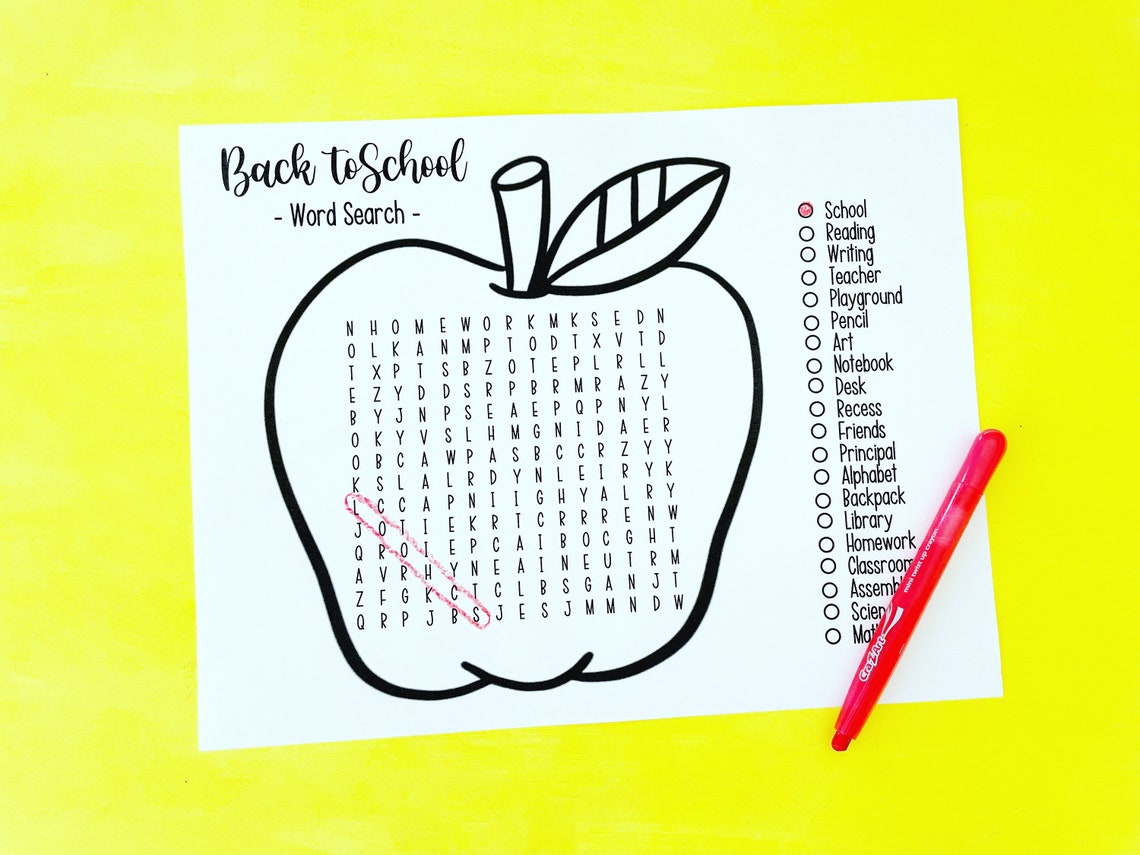 Back to School
- Word Search -
N H O M E W O R K M K S E D N
O L K A N M P T O D T X V T D
T X P T S B Z O T E P L R L L
E Z Y D D S R P B R M R A Z Y
B Y J N P S E A E P Q P N Y L
O K Y V S L H M G N I D A E R
O B C A W P A S B C C R Z Y Y
K S L A L R D Y N L E I R Y K
L C C A P N I I G H Y A L R Y
J O T I E K R T C R R R E N W
Q R O T E P C A I B O C G H T
A V R H Y N E A I N E U T R M
Z F G K C T C L B S G A N J T
Q R P J B S J E S J M M N D W
School
Reading
Writing
Teacher
Playground
Pencil
Art
Notebook
Desk
Recess
Friends
Principal
Alphabet
Backpack
Library
Homework
Classroom
Assemb
Scien
Mat
Cra-Z-Art
mini twist up crayon